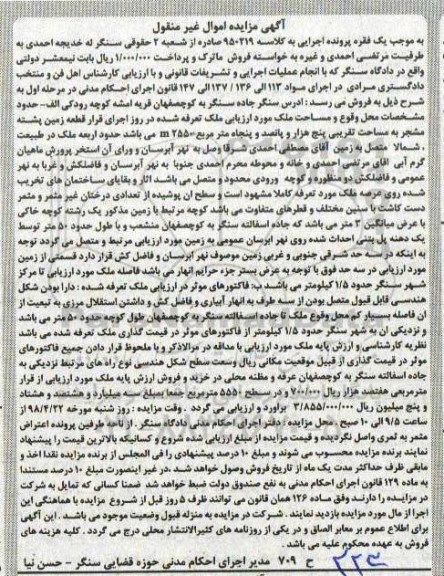 آگهی مزایده اموال غیر منقول
به موجب یک فقره پرونده اجرایی به کلاسه ۹۵۰۲۱۹ صادره از شعبه ۲ حقوقی سنگر له خدیجه احمدی به
طرفیت مرتضی احمدی و غیره به خواسته فروش ماترک و پرداخت ۱/۰۰۰/۰۰۰ ریال بابت نیمعشر دولتی
واقع در دادگاه سنگر که با انجام عملیات اجرایی و تشریفات قانونی و با ارزیابی کارشناس اهل فن و منتخب
دادگستری مرادی در اجرای مواد ۱۱۳ الی ۱۲۶ / ۱۳۷ الی ۱۴۷ قانون اجرای احکام مدنی در مرحله اول به
شرح ذیل به فروش می رسد : ادرس سنگر جاده سنگر به کوچصفهان قریه امشه کوچه رودکی الف- حدود
مشخصات محل وقوع و مساحت ملک مورد ارزیابی ملک تعرفه شده در روز اجرای قرار قطعه زمین پشته
مشجر به مساحت تقریبی پنج هزار و پانصد و پنجاه متر مربع m ۲۵۵۰ می باشد حدود اربعه ملک در طبیعت
، شمالا متصل به زمین آقای مصطفی احمدی شرقا وصل به نهر آبرسان و ورای آن استخر پرورش ماهیان
گرم آبی اقای مرتضی احمدی و خانه و محوطه محرم احمدی جنوبا به نهر آبرسان و فاضلکش و غربا به نهر
عمومی و فاضلکش دو منظوره و کوچه ورودی محدود و متصل می باشد.اثار و بقایای ساختمان های تخریب
شده روی عرصه ملک مورد تعرفه کاملا مشهود است و سطح ان پوشیده از تعدادی درختان غیر مثمر و مثمر
دست کاشت با سنین مختلف و قطرهای متفاوت می باشد کوچه مرتبط با زمین مذکور یک رشته کوچه خاکی
با عرض میانگین ۳ متر می باشد که جاده اسفالته سنگر به کوچصفهان منشعب و با طول حدود ۵۰ متر توسط
یک دهنه پل بتنی احداث شده روی نهر ابرسان عمومی به زمین مورد ارزیابی مرتبط و متصل می گردد توجه
به اینکه در سه حد شرقی جنوبی و غربی زمین موصوف نهر ابرسان و فاضل کش قرار دارد قسمتی از زمین
مورد ارزیابی در سه حد فوق با توجه به عرض بستر جزء حرایم انهار می باشد فاصله ملک مورد ارزیابی تا مرکز
شهر سنگر حدود ۱/۵ کیلومتر می باشد ب: فاکتورهای موثر در ارزیابی ملک تعرفه شده : دارا بودن شکل
هندسی قابل قبول متصل بودن از سه طرف به انهار آبیاری و فاضل کش و داشتن استقلال مرزی به تبعیت از
ان فاصله بسیار کم محل وقوع ملک تا جاده اسفالته سنگر به کوچصفهان طول کوچه حدود ۵۰ متر می باشد
و نزدیکی ان به شهر سنگر حدود ۱/۵ کیلومتر از فاکتورهای موثر در قیمت گذاری ملک تعرفه شده می باشد
نظریه کارشناسی و ارزش پایه ملک مورد ارزیابی با مداقه در مراالاذکر و با ملحوظ قرار دادن جمیع فاکتورهای
موثر در قیمت گذاری از قبیل موقعیت مکانی ریال وسعت سطح شکل هندسی نوع راه های مرتبط نزدیکی به
جاده اسفالته سنگر به کوچصفهان عرفه و مظنه محلی در خرید و فروش ارزش پایه ملک مورد ارزیابی از قرار
مترمربعی هفتصد هزار ریال ۷۰۰/۰۰۰ و در سطح ۵۵۵۰ مترمربع جمعا بمبلغ سه میلیارد و هشتصد و هشتاد
و پنج میلیون ریال ۳/۸۵۵/۰۰۰/۰۰۰ برآورد و ارزیابی می گردد . وقت مزایده : روز شنبه مورخه ۹۸/۴/۲۲ از
ساعت ۹/۵ الی ۱۰ صبح ، محل مزایده : دفتر اجرای احکام مدنی دادگاه سنگر . از ناحیه طرفین پرونده اعتراض
مثمر به ثمری واصل نگردیده و قیمت مزایده از مبلغ ارزیابی شده شروع و کسانیکه بالاترین قیمت را پیشنهاد
نمایند برنده مزایده محسوب می شوند و مبلغ ۱۰ درصد پیشنهادی را فی المجلس از برنده مزایده نقدا اخذ و
مابقی ظرف حداکثر مدت یک ماه از تاریخ فروش وصول خواهد شد ،در غیر اینصورت مبلغ ۱۰ درصد مستندا
به ماده ۱۲۹ قانون اجرای احکام مدنی به نفع صندوق دولت ضبط خواهد شد ضمنا کسانی که تمایل به شرکت
در مزایده را دارند وفق ماده ۱۲۶ همان قانون می توانند ظرف ۵ روز قبل از شروع مزایده با هماهنگی این
اجرا از مال مورد مزایده بازدید نمایند . شرکت در مزایده به منزله قبول وضعیت موجود می باشد . این آگهی
برای اطلاع عموم بر معابر الصاق و در یکی از روزنامه های کثیرالانتشار محلی درج می گردد . کلیه هزینه های
فروش به عهده محکوم علیه می باشد .
۲۲۳ ح ۷۰۹ مدیر اجرای احکام مدنی حوزه قضایی سنگر – حسن نیا